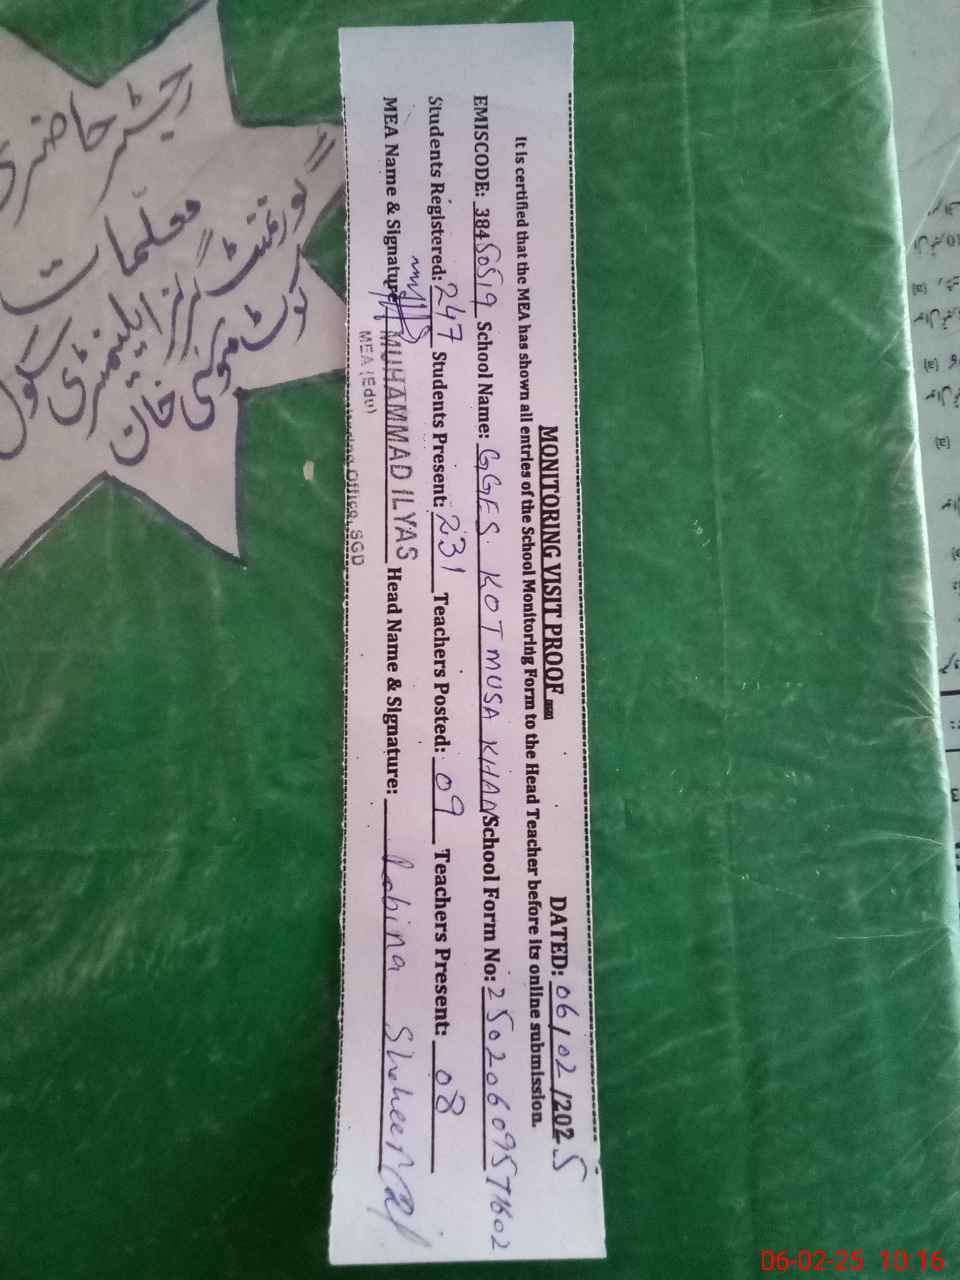 MONITORING VISIT PROOF
DATED: 06/02/2025
It is certified that the MEA has shown all entries of the School Monitoring Form to the Head Teacher before its online submission.
EMISCODE: 38450519 School Name: GGES KOT MUSA KHAN School Form No:
Students Registered: 247 Students Present: 231 Teachers Posted: 09 Teachers Present: 08
MEA Name & Signature MUHAMMAD ILYAS Head Name & Signature: Robina Shaheen
MEA (Edu)
Office, SGD
رجسٹر حاضری
معلمات
گورنمنٹ گرلز ایلیمنٹری سکول
کوٹ موسی خان
06-02-25 10:16